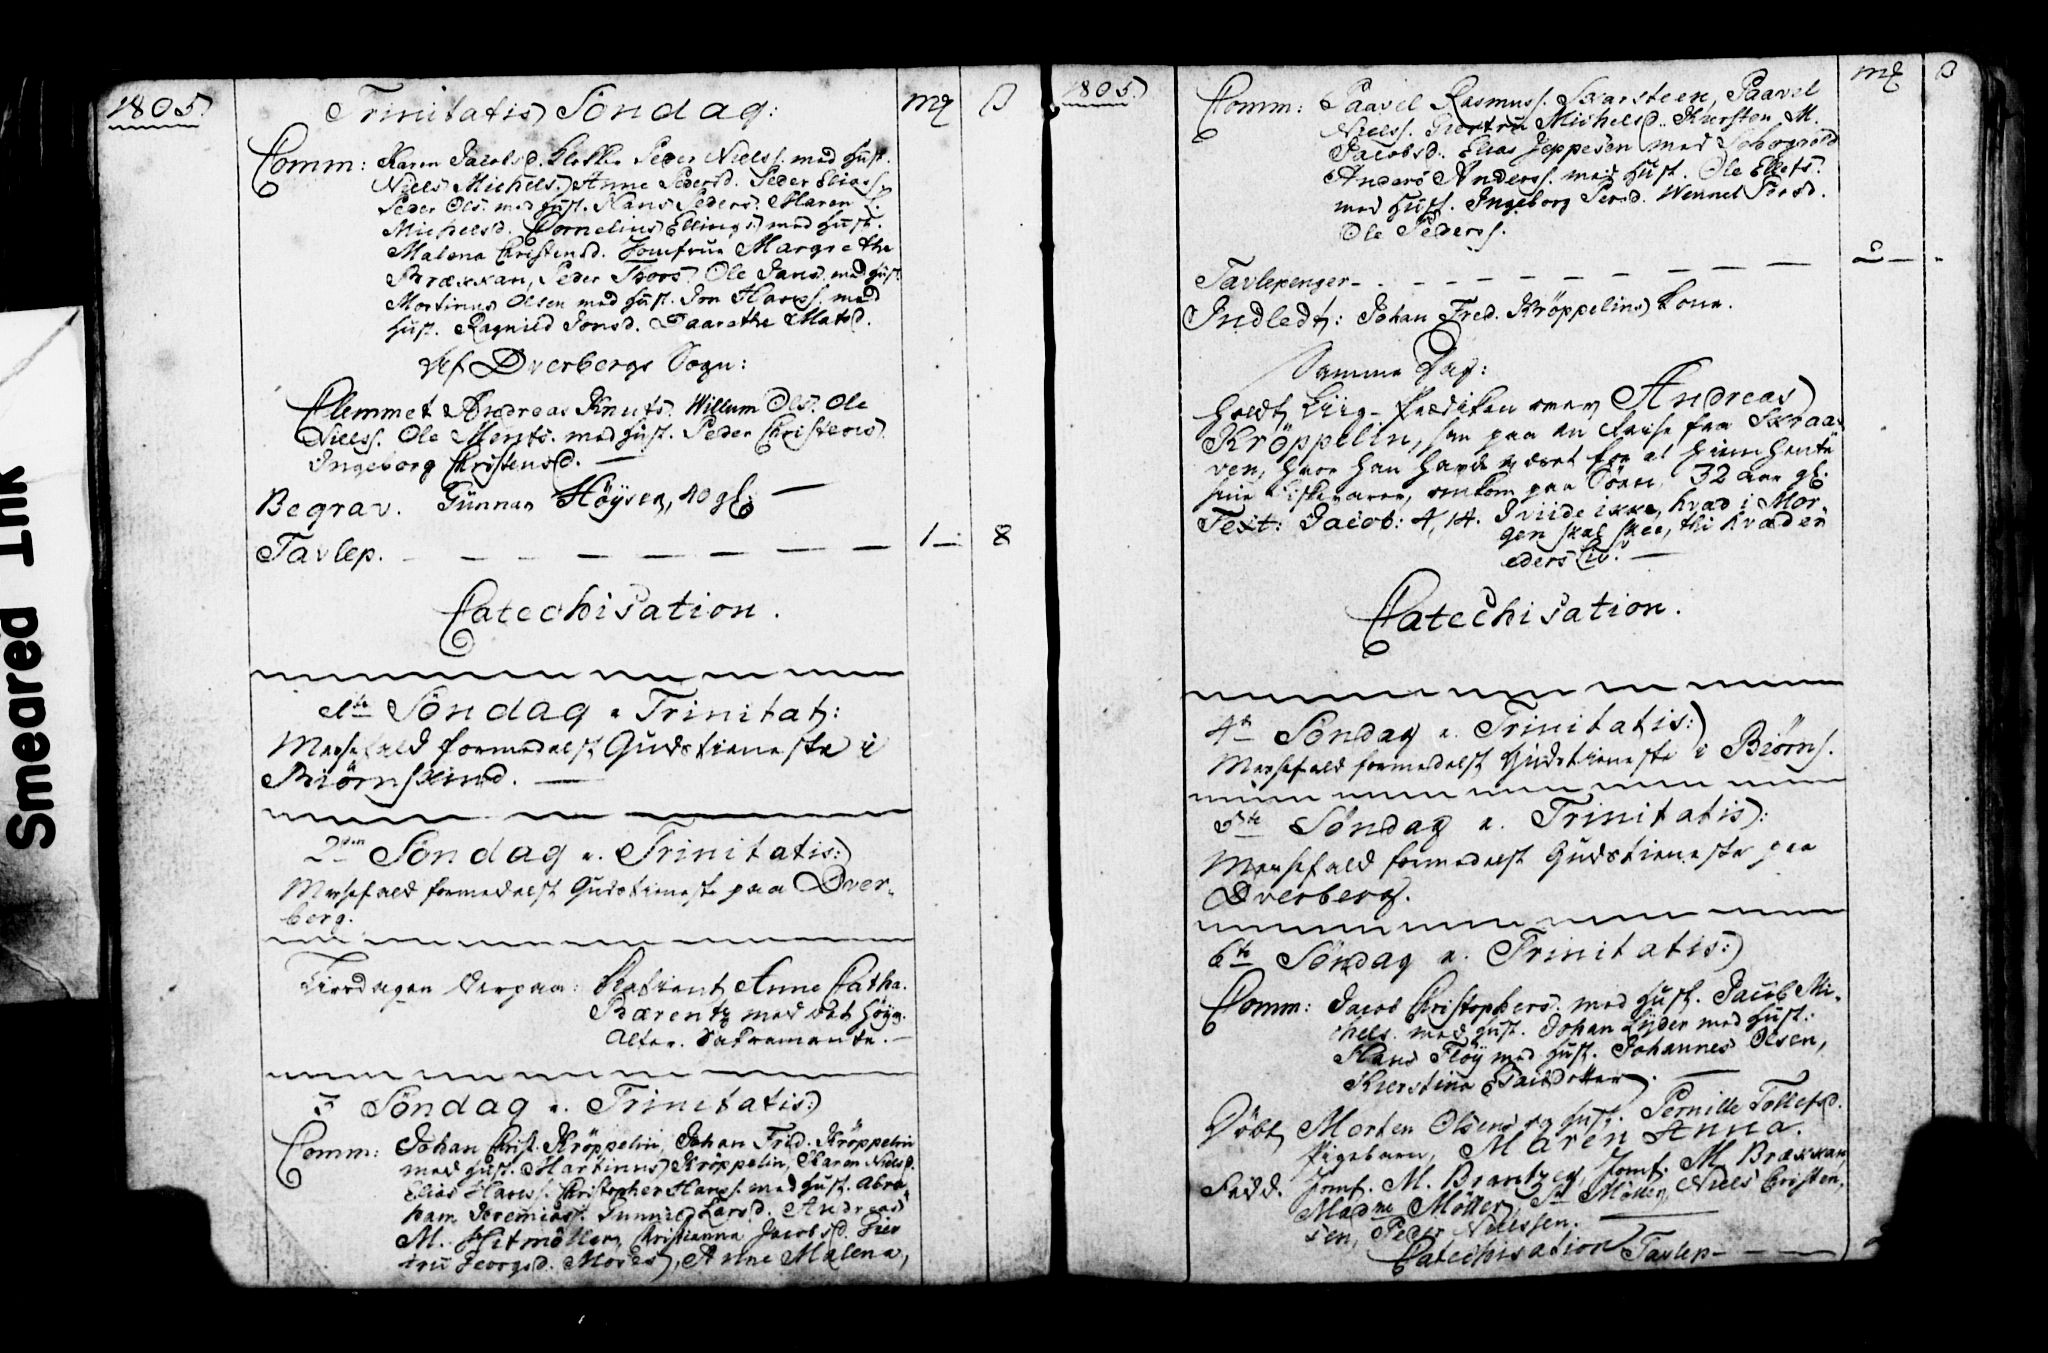 1805.
Trinitatis Søndag:
mɋ β
Comm: Karen Jacobsd. Klokker Peder Nielss. med Hust.
Niels Michels. Anne Pedersd. Peder Eliass.
Peder Ols. med Hust. Hans Peders. Maren
Michelsd. Cornelius Ellings. med Hust.
Malena Christensd. Jomfrue Margrethe
Brækkan, Peder Thors. Ole Jans. med Hust.
Mortinus Olsen med Hust. Jon Hanss. med
Hust. Ragnild Jonsd. Daarathe Matsd.
Af Dverbergs Sogn:
Clemmet Andreas Knuts. Willum Ols. Ole
Nielss. Ole Ments. med Hust. Peder Christens.
Ingeborg Christensd. —
Begrav. Gunnar Høyser, 40 gl. —
Tavlep. — — — — — — — 1 — 8
Catechisation.
1te Søndag e. Trinitat:
Messefald formedelst Gudstieneste i
Biørnskind. —
2den Søndag e. Trinitatis:
Messefald formedelst Gudstieneste paa Dver-
berg.
Tiersdagen derpaa: Betient Anne Catha.
Bærentz med det Høyv.
Alter. Sakramente. —
3 Søndag e. Trinitatis:
Comm: Johan Christ. Krøppelin, Johan Fred. Krøppelin
med Hust. Martinus Krøppelin, Karen Nielsd.
Elias Hanss. Christopher Hanss. med Hust. Abra-
ham Jeremiass. Gunnild Larsd. Andreas
M. Hitmøller, Christianna Jacobsd. Gier
tru Georgsd. Moses, Anne Malena,
1805.
mɋ β
Comm: Paavel Rasmuss. Skarsteen, Paavel
Nielss. Giertru Michelsd. Kiersten M.
Jacobsd. Elias Jeppesen med
Anders Anderss. med Hust. Ole Ellefs.
med Hust. Ingeborg Persd. Wennet
Ole Pederss.
Tavlepenger — — — — — — — — 2 — -
Indledt: Johan Fred. Krøppelins Kone.
Samme Dag:
Holdt Liig-Prædiken over Andreas
Krøppelin, som paa en Reise fra Skraa-
ven, hvor han havde været for at hiemhente
sine Fiskevarer, omkom paa Søen, 32 Aar gl.
Text: Jacob: 4, 14. I viide ikke, hvad i Mor-
gen skal skee, thi hvad er
eders Liv. —
Catechisation.
4de Søndag e. Trinitatis:
Messefald formedelst Gudstieneste i Biørns.
5te Søndag e. Trinitatis:
Messefald formedelst Gudstieneste paa
Dverberg.
6te Søndag e. Trinitatis:
Comm: Jacob Christophers. med Hust. Jacob Mi-
chels. med Hust. Johan Lyder med Hust.
Hans Fløy med Hust. Johannes Olsen,
Kierstina
Døbt Morten Olsens og Hust. Pernille Tollefsd.
Pigebarn, Maren Anna.
Fadd. Jomf. M. Brantzeg, Jomf. M. Brækkan,
Madme Møller, Sr Møller, Niels Christen-
sen, Peder Nielssen. —
Catechisation Tavlep — — —
Smeared Ink